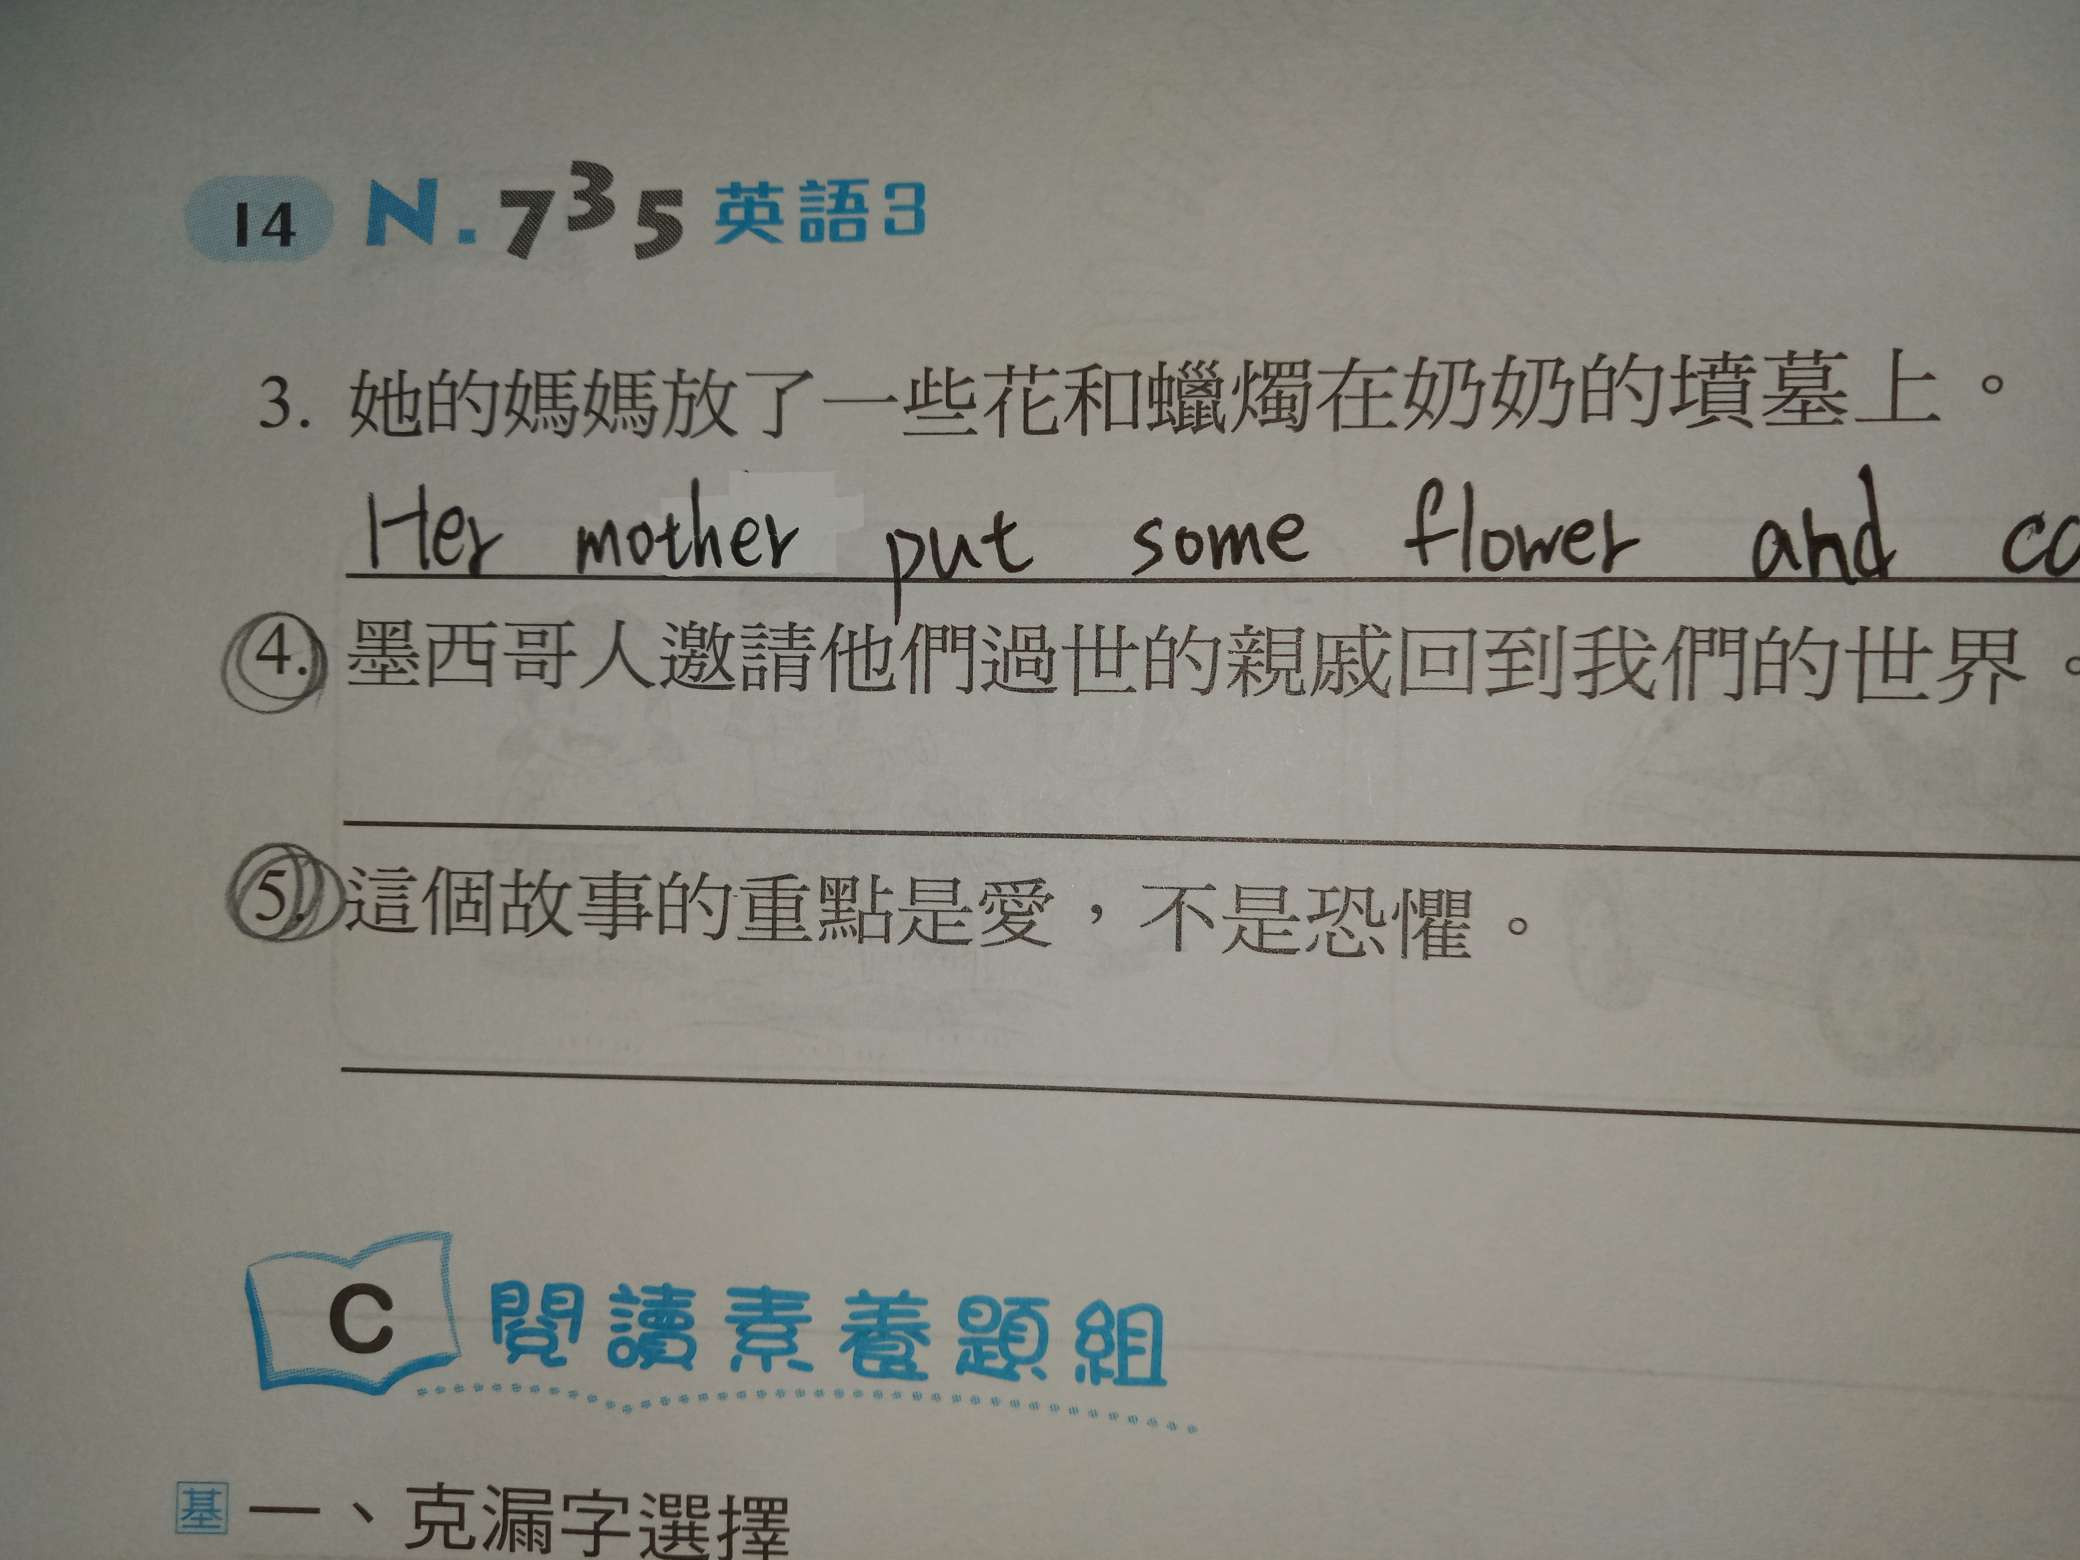 14 N.735 英語3
3. 她的媽媽放了一些花和蠟燭在奶奶的墳墓上。
Her mother put some flower and
4. 墨西哥人邀請他們過世的親戚回到我們的世界。
5. 這個故事的重點是愛，不是恐懼。
C 閱讀素養題組
基 一、克漏字選擇